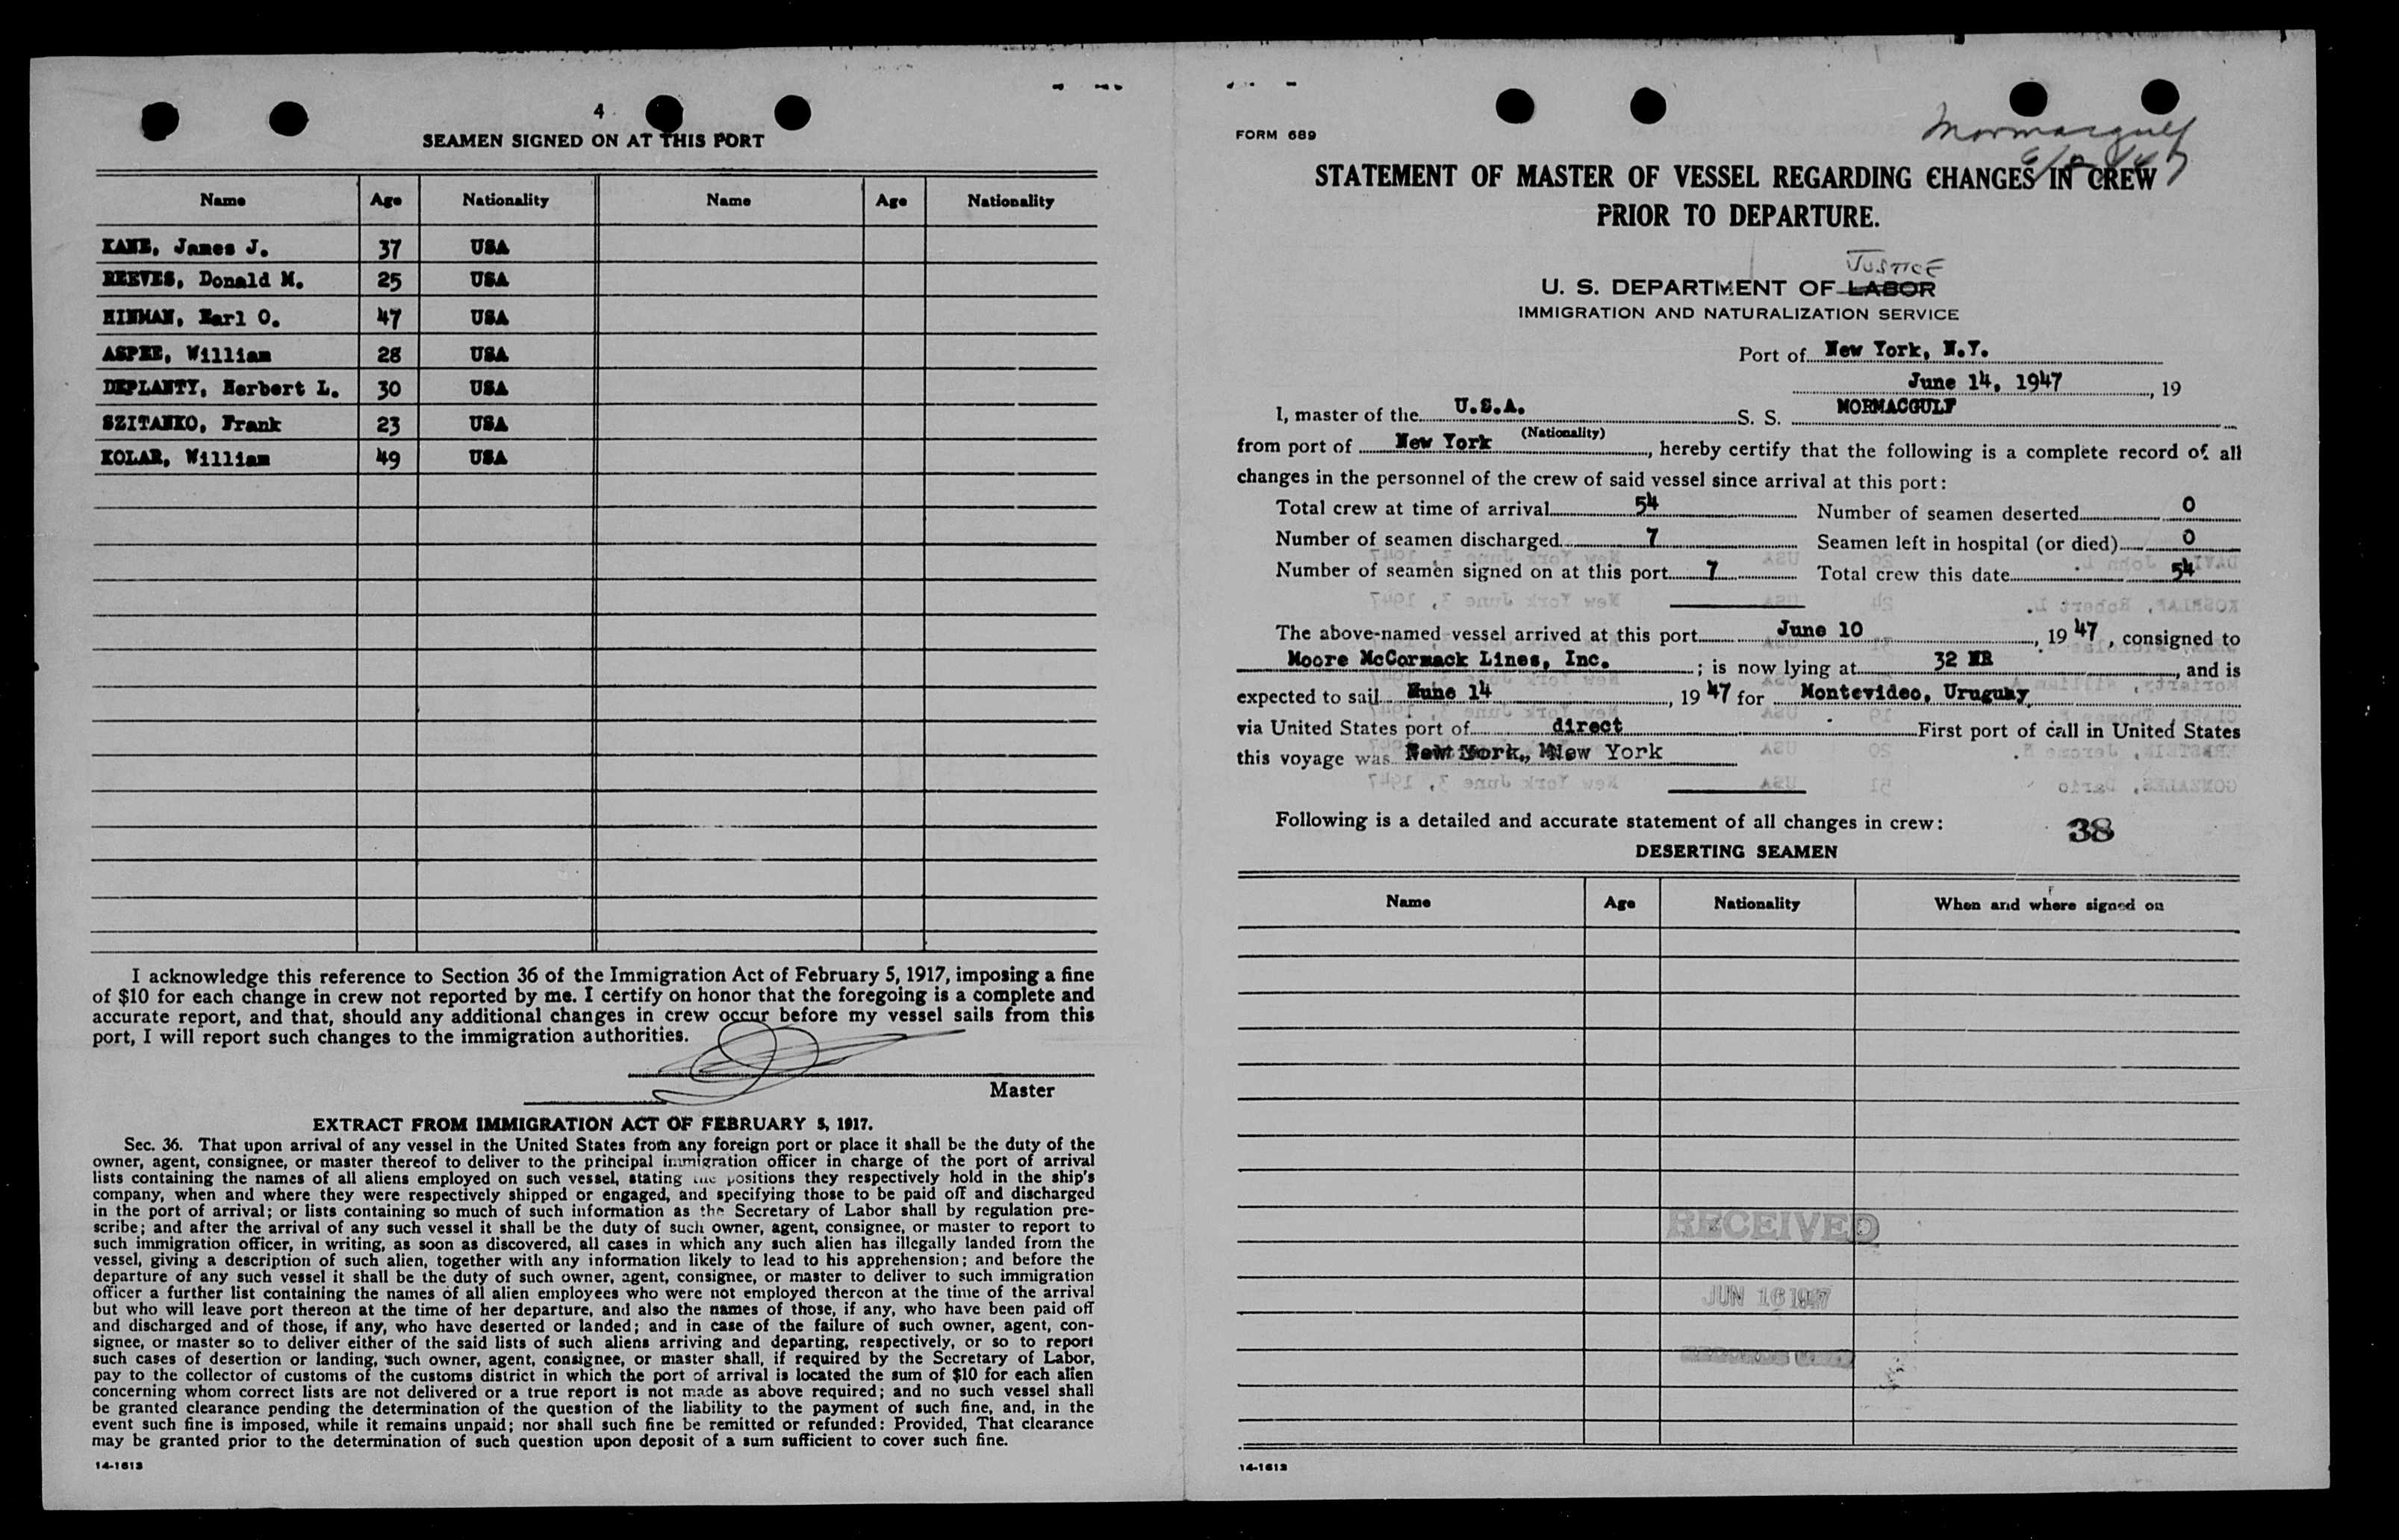 4
SEAMEN SIGNED ON AT THIS PORT
Name Age Nationality Name Age Nationality
KANE, James J. 37 USA
REEVES, Donald M. 25 USA
HINMAN, Earl O. 47 USA
ASPEE, William 28 USA
DEPLANTY, Herbert L. 30 USA
SZITANKO, Frank 23 USA
KOLAR, William 49 USA
I acknowledge this reference to Section 36 of the Immigration Act of February 5, 1917, imposing a fine
of $10 for each change in crew not reported by me. I certify on honor that the foregoing is a complete and
accurate report, and that, should any additional changes in crew occur before my vessel sails from this
port, I will report such changes to the immigration authorities.
Master
EXTRACT FROM IMMIGRATION ACT OF FEBRUARY 5, 1917.
Sec. 36. That upon arrival of any vessel in the United States from any foreign port or place it shall be the duty of the
owner, agent, consignee, or master thereof to deliver to the principal immigration officer in charge of the port of arrival
lists containing the names of all aliens employed on such vessel, stating the positions they respectively hold in the ship's
company, when and where they were respectively shipped or engaged, and specifying those to be paid off and discharged
in the port of arrival; or lists containing so much of such information as the Secretary of Labor shall by regulation pre-
scribe; and after the arrival of any such vessel it shall be the duty of such owner, agent, consignee, or master to report to
such immigration officer, in writing, as soon as discovered, all cases in which any such alien has illegally landed from the
vessel, giving a description of such alien, together with any information likely to lead to his apprehension; and before the
departure of any such vessel it shall be the duty of such owner, agent, consignee, or master to deliver to such immigration
officer a further list containing the names of all alien employees who were not employed thereon at the time of the arrival
but who will leave port thereon at the time of her departure, and also the names of those, if any, who have been paid off
and discharged and of those, if any, who have deserted or landed; and in case of the failure of such owner, agent, con-
signee, or master so to deliver either of the said lists of such aliens arriving and departing, respectively, or so to report
such cases of desertion or landing, such owner, agent, consignee, or master shall, if required by the Secretary of Labor,
pay to the collector of customs of the customs district in which the port of arrival is located the sum of $10 for each alien
concerning whom correct lists are not delivered or a true report is not made as above required; and no such vessel shall
be granted clearance pending the determination of the question of the liability to the payment of such fine, and, in the
event such fine is imposed, while it remains unpaid; nor shall such fine be remitted or refunded: Provided, That clearance
may be granted prior to the determination of such question upon deposit of a sum sufficient to cover such fine.
14-1613
FORM 689
Mormacgulf
STATEMENT OF MASTER OF VESSEL REGARDING CHANGES IN CREW
PRIOR TO DEPARTURE.
JUSTICE
U. S. DEPARTMENT OF LABOR
IMMIGRATION AND NATURALIZATION SERVICE
Port of New York, N.Y.
June 14, 1947, 19
I, master of the U.S.A. S. S. MORMACGULF
(Nationality)
from port of New York, hereby certify that the following is a complete record of all
changes in the personnel of the crew of said vessel since arrival at this port:
Total crew at time of arrival 54 Number of seamen deserted 0
Number of seamen discharged 7 Seamen left in hospital (or died) 0
Number of seamen signed on at this port 7 Total crew this date 54
The above-named vessel arrived at this port June 10, 19 47, consigned to
Moore McCormack Lines, Inc. ; is now lying at 32 NR, and is
expected to sail June 14, 19 47 for Montevideo, Uruguay
via United States port of direct First port of call in United States
this voyage was New York, New York
Following is a detailed and accurate statement of all changes in crew:
38
DESERTING SEAMEN
Name Age Nationality When and where signed on
RECEIVED
JUN 16 1947
14-1613